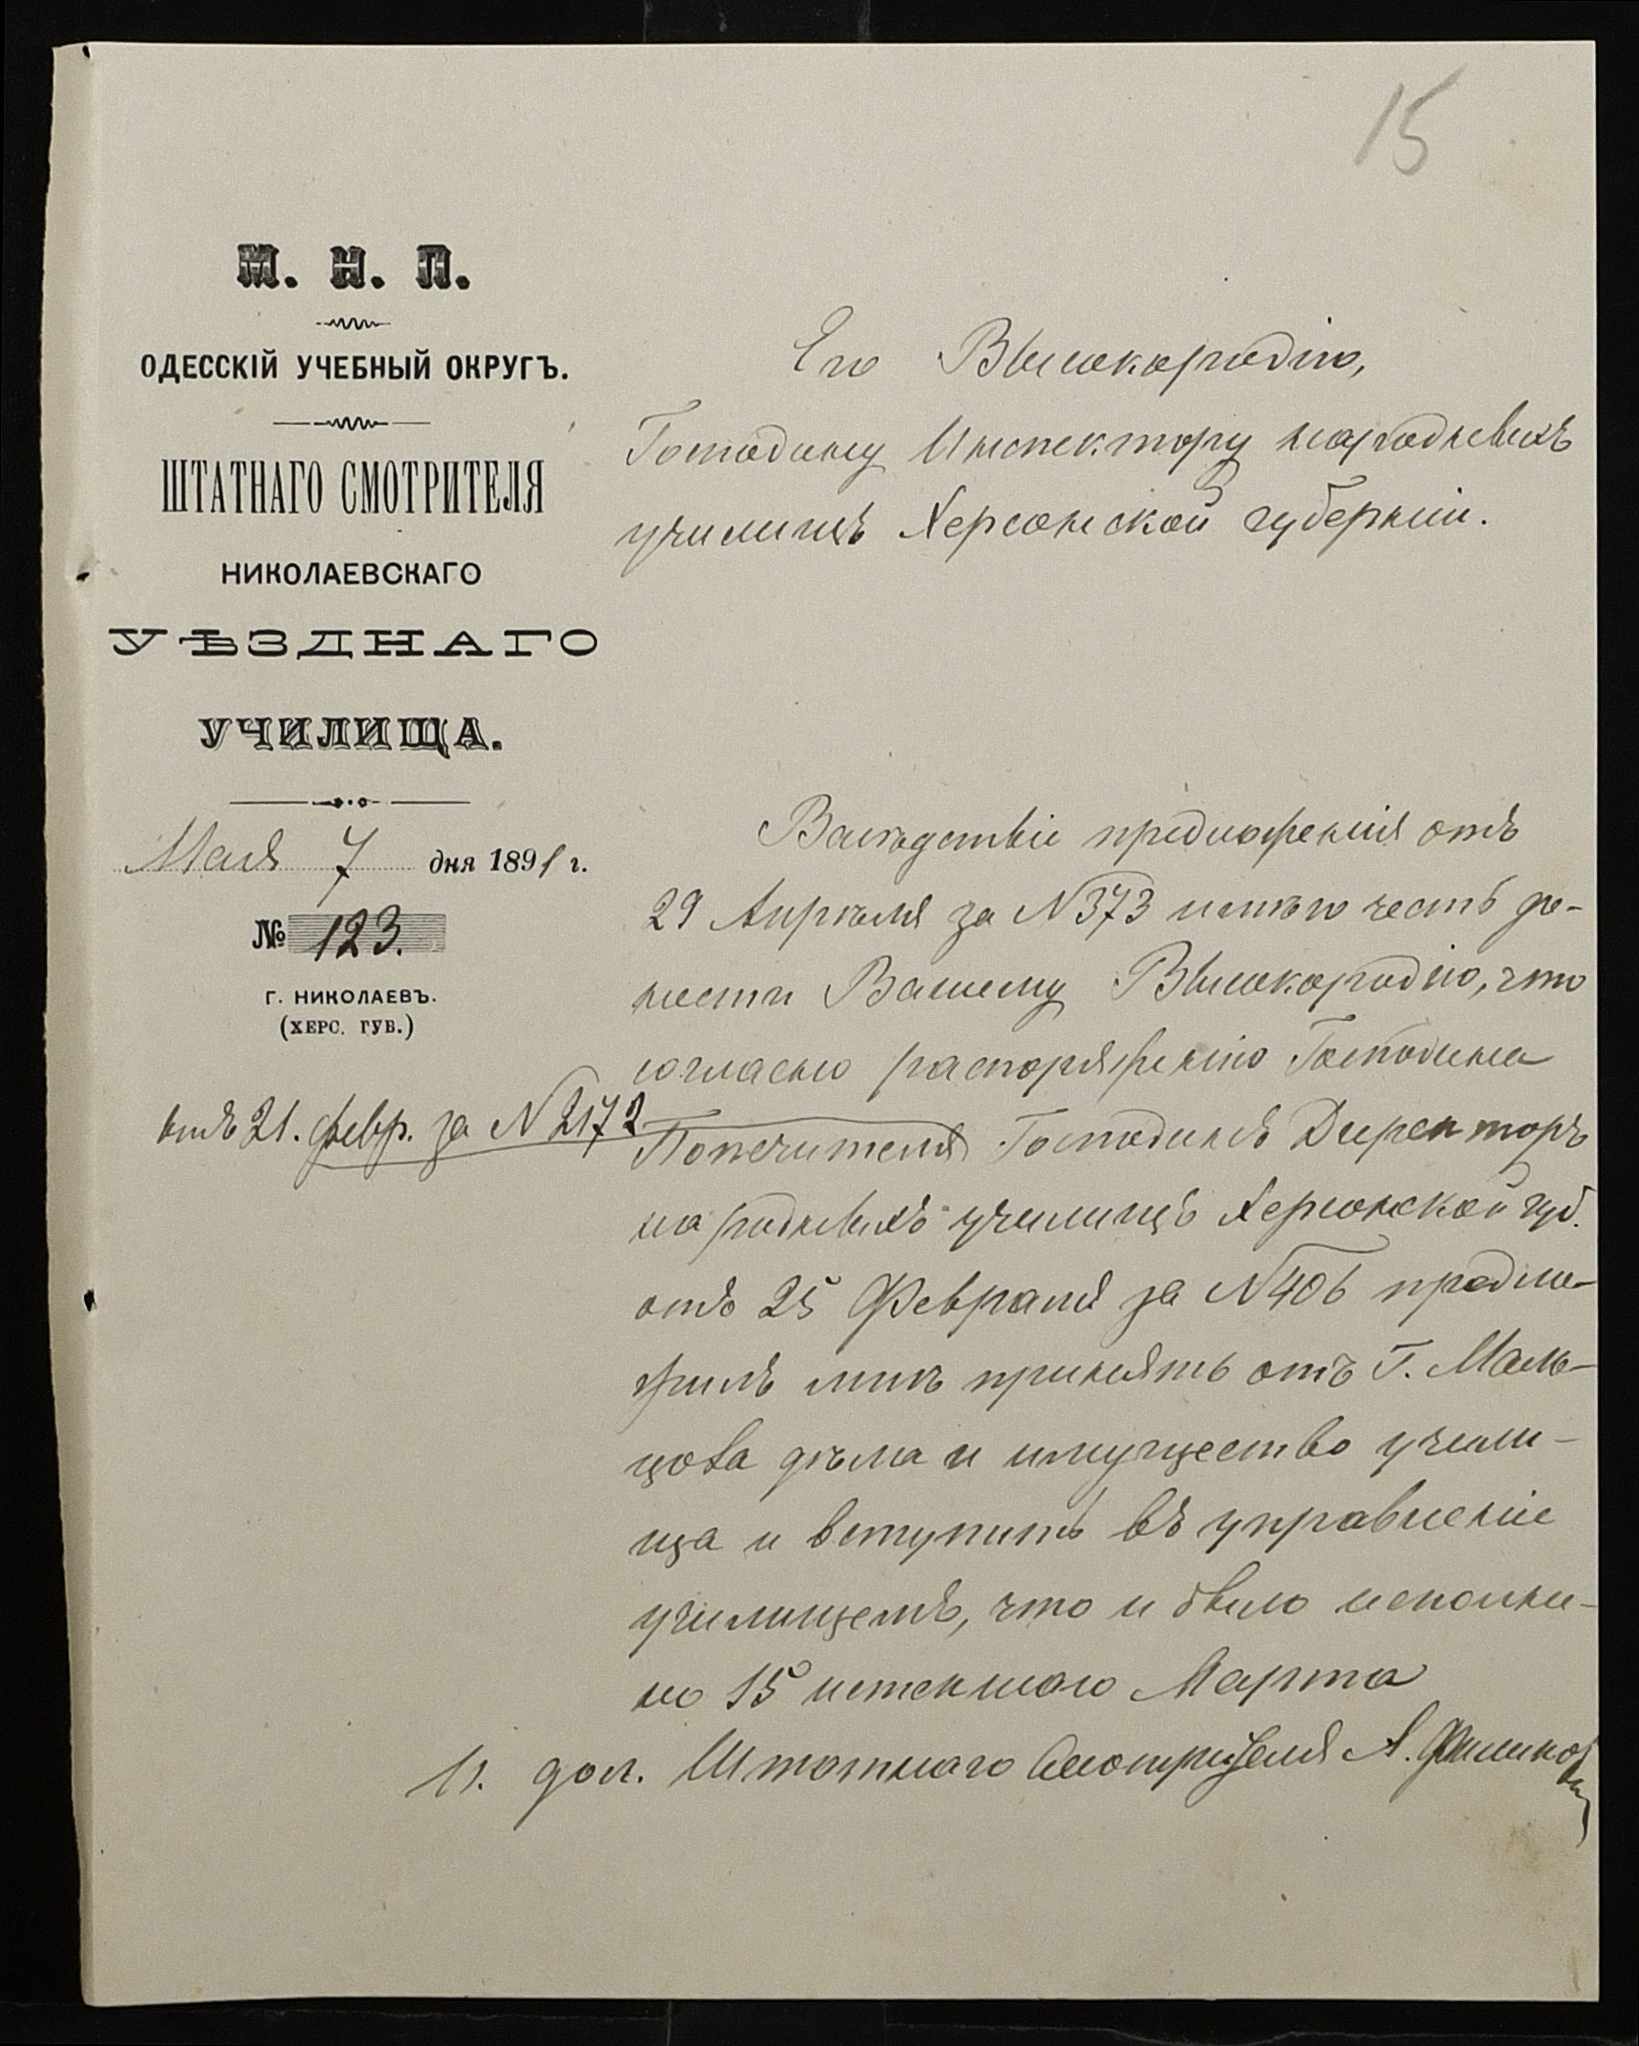 15
М. Н. П.
ОДЕССКІЙ УЧЕБНЫЙ ОКРУГЪ.
ШТАТНАГО СМОТРИТЕЛЯ
НИКОЛАЕВСКАГО
УѢЗДНАГО
УЧИЛИЩА.
Мая 7 дня 1891 г.
№ 123.
Г. НИКОЛАЕВЪ.
(ХЕРС. ГУБ.)
отъ 21. февр. за N 2172
Его Высокородію,
Господину Инспектору народныхъ
училищъ Херсонской губерніи.
Вслѣдствіе предложенія отъ
29 Апрѣля за N 373 имѣю честь до-
нести Вашему Высокородію, что
согласно распоряженію Господина
Попечителя Господинъ Директоръ
народныхъ училищъ Херсонской губ.
отъ 25 Февраля за N 406 предло-
жилъ мнѣ принять отъ Г. Маль-
цова дѣла и имущество учили-
ща и вступить въ управленіе
училищемъ, что и было исполне-
но 15 истекшаго Марта
И. дол. Штатнаго Смотрителя А.